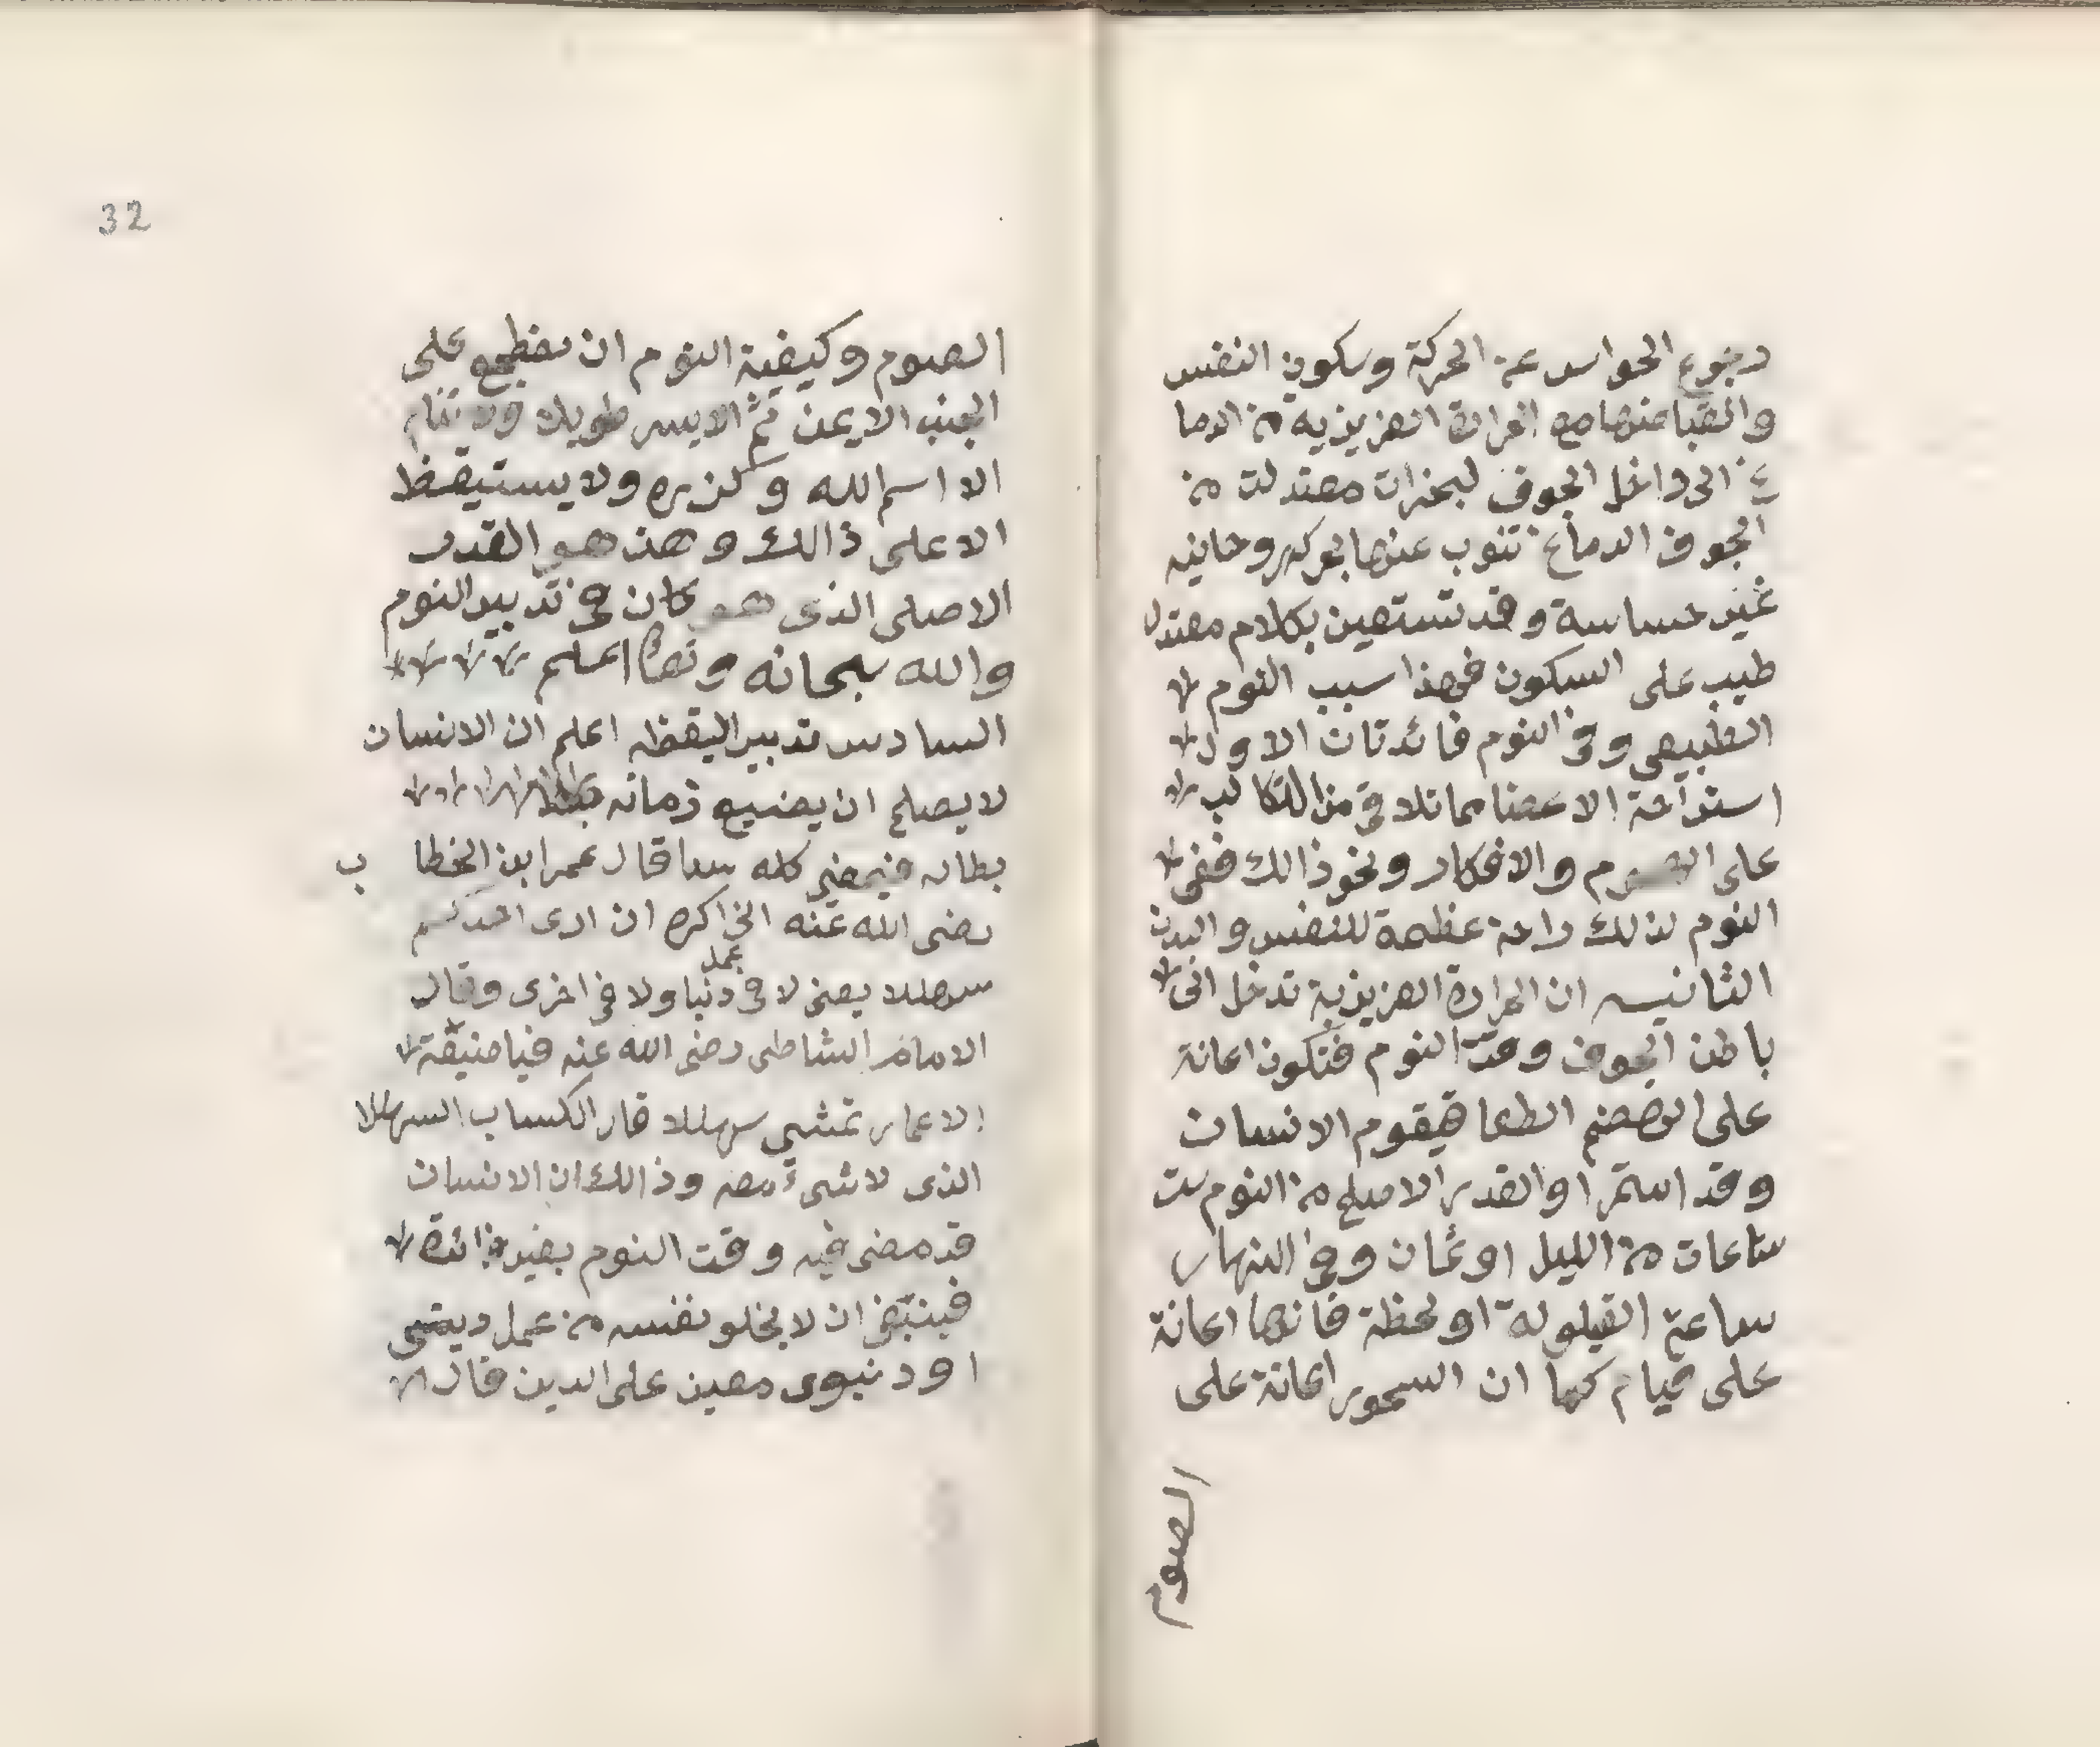 رجوع الحواس عن الحركة وسكون النفس
والقبا عنها مع الحرارة الغريزيه من الدما
غ الى داخل الجوف لبخرات معتدلت من
الجوف الدماغ تنوب عنها بحركه روحانيه
غير حساسة وقد تستعين بكلام معتدل
طيب على السكون فهذا سبب النوم
الطبيعي وفي النوم فائدتان الاول
استراحة الاعضا مما تلاقي من التكالب
على الهموم والافكار ونحو ذالك ففي
النوم لذلك راحة عظمة للنفس والبدن
الثانيه ان الحرارة الغريزية تدخل الى
باطن الجوف وقت النوم فتكون اعانة
على الهضم الطعا فيقوم الانسان
وقد استمرا والقدر الاصلح من النوم ست
ساعات من الليل او ثمان وفي النهار
ساعة القيلولة او لحظة فانها اعانة
على قيام كما ان السحور اعانة على
الصوم
32
الصوم وكيفية النوم ان يضطجع على
الجنب الايمن ثم الايسر طويلا ولا ينام
الا اسم الله وذكره ولا يستيقظ
الا على ذالك وهذ هو القدر
الاصلى الذى هو كان في تدبير النوم
والله سبحانه وتعا اعلم
السادس تدبير اليقظه اعلم ان الانسان
لا يصلح ان يضيع زمانه
بطاله فيمضي كله سدا قال عمر ابن الخطا ب
رضى الله عنه انى اكره ان ارى احدكم
سهللا يعنى لا في عمل دنيا ولا في اخرى وقال
الامام الشاطى رضى الله عنه فيا ضيقة
الاعمار تمشى سهللا قال الكساب السهللا
الذى لا شىء معه وذالك ان الانسان
قد مضى فيه وقت النوم بغير فائدة
فينبغى ان لا يخلو نفسه من عمل ديني
او دنيوى معين على الدين قال